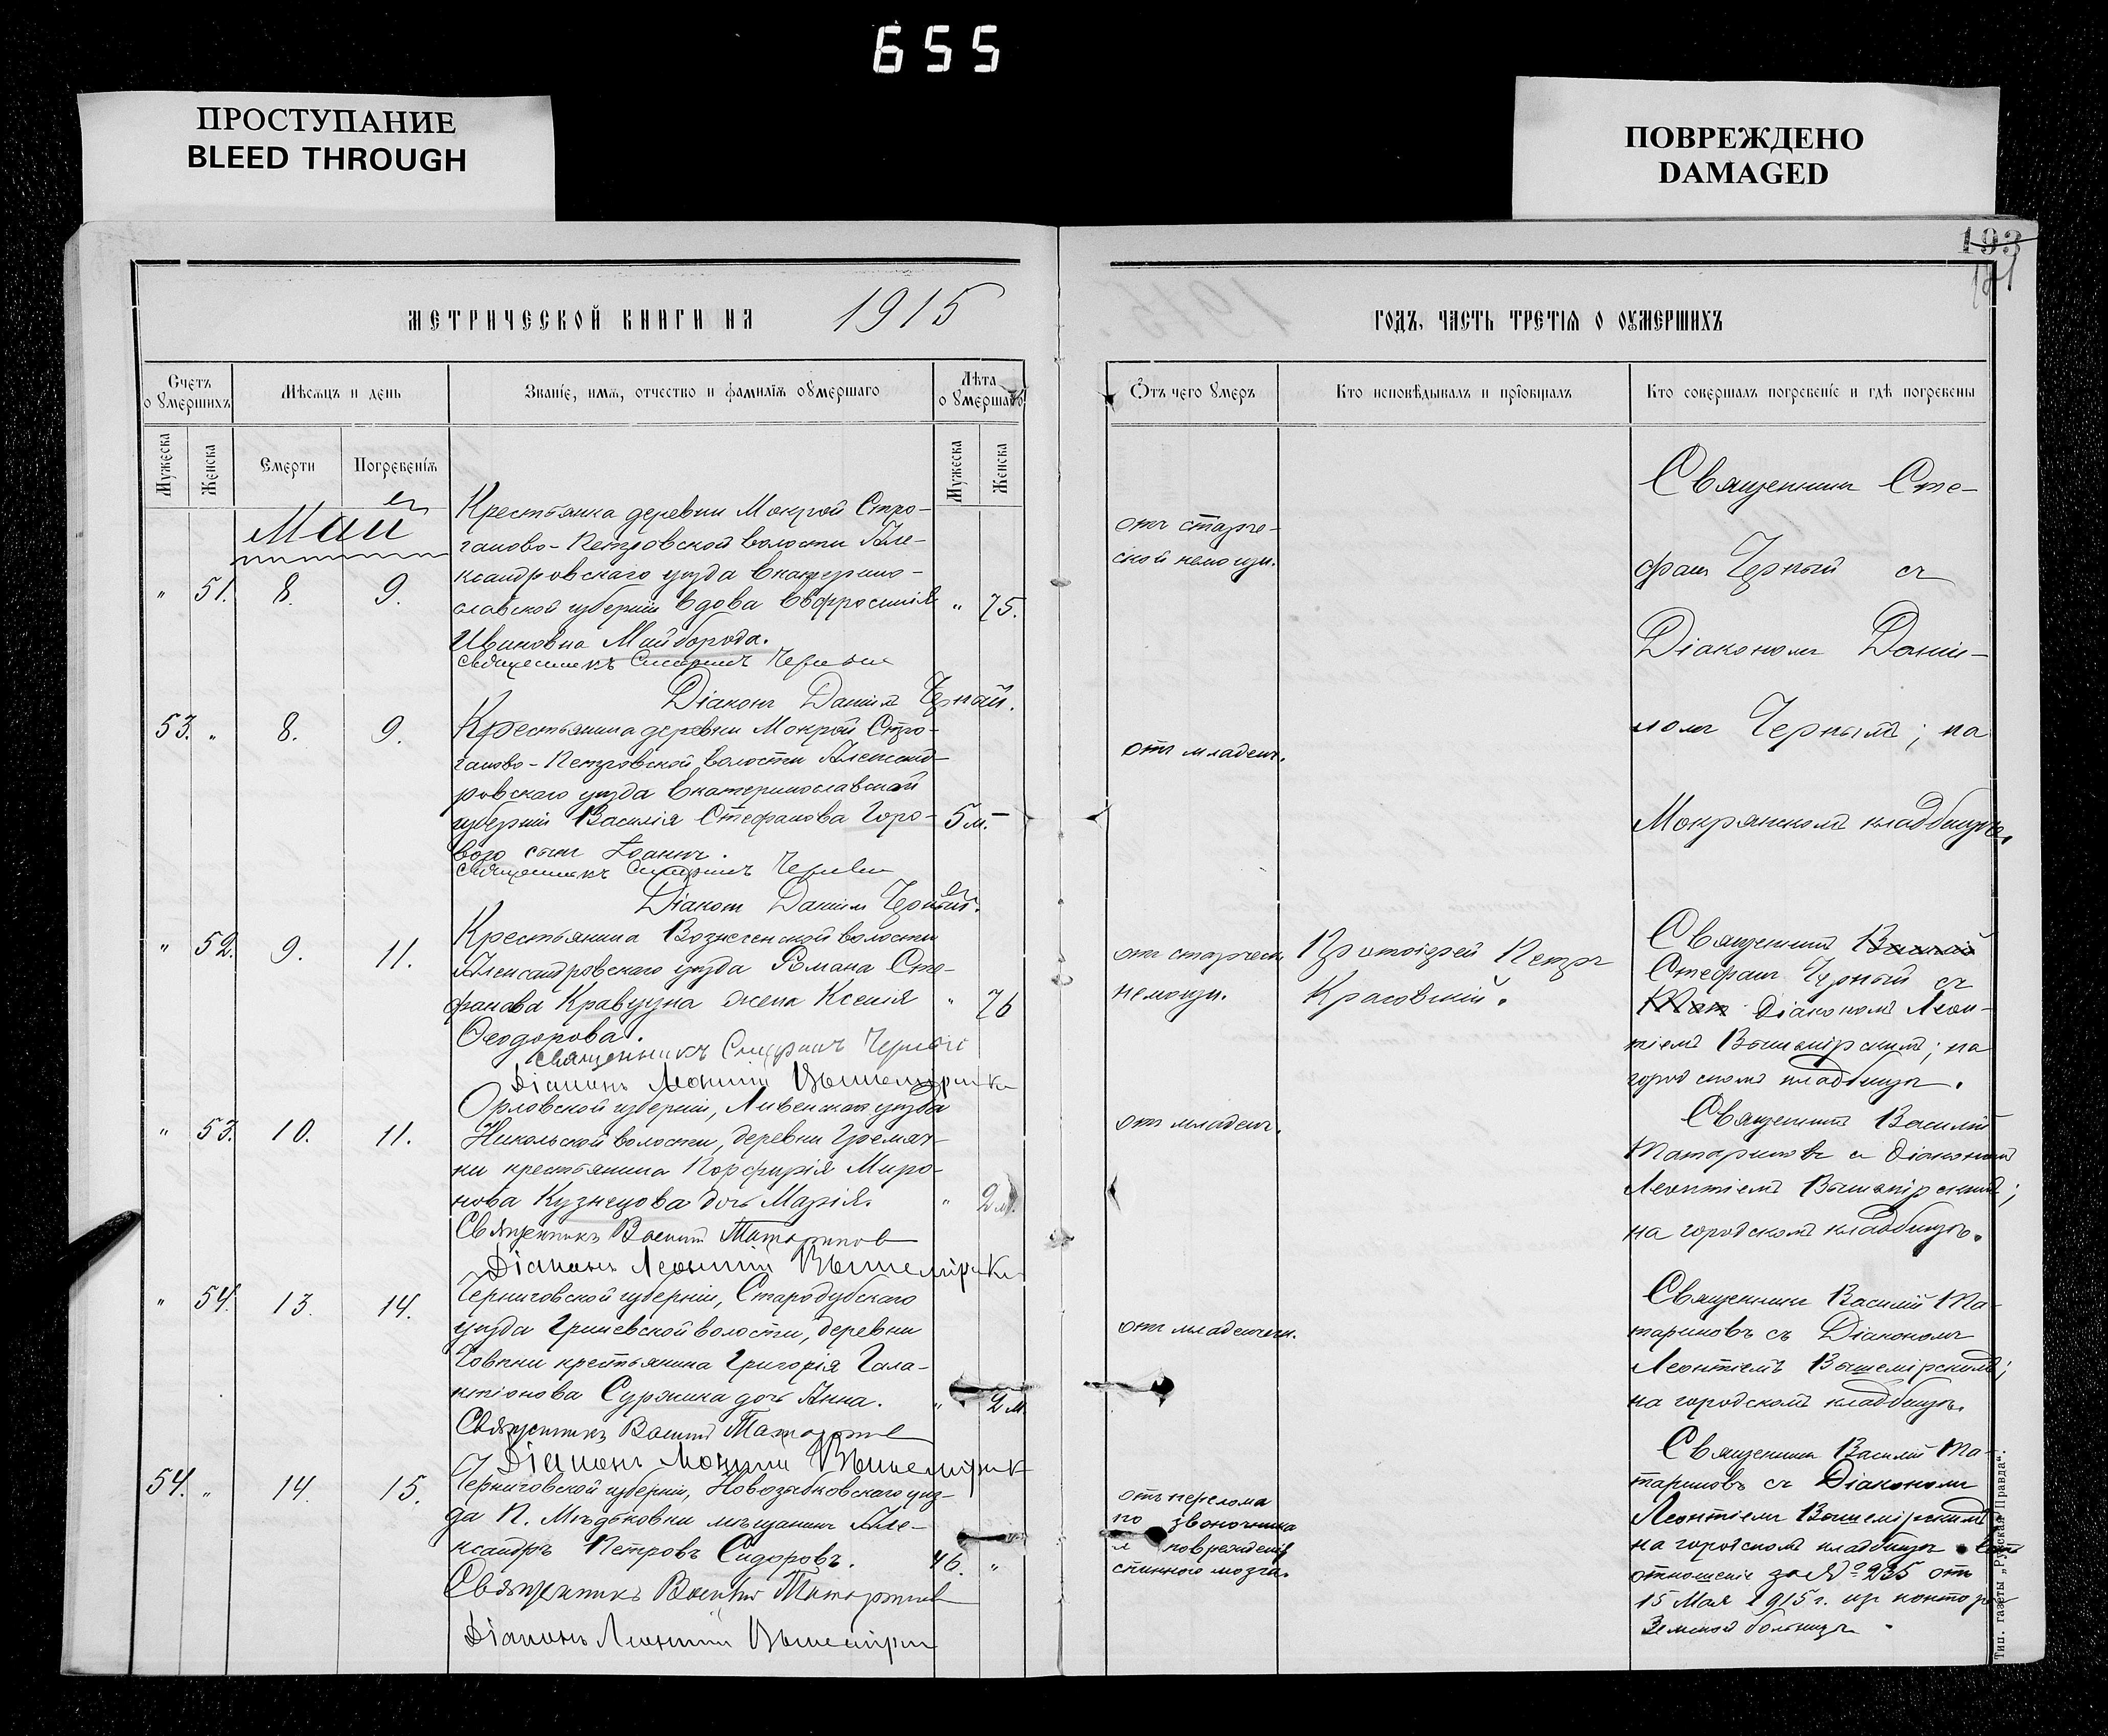 655
ПРОСТУПАНИЕ
BLEED THROUGH
ПОВРЕЖДЕНО
DAMAGED
193
МЕТРИЧЕСКОЙ КНИГИ НА 1915
ГОДЪ, ЧАСТЬ ТРЕТІЯ О ОУМЕРШИХЪ
Счетъ о умершихъ
Мѣсяцъ и день
Званіе, имя, отчество и фамилія оумершаго
Лѣта о умершаго
Отъ чего умеръ
Кто исповѣдывалъ и пріобщалъ
Кто совершалъ погребеніе и гдѣ погребены
Мужеска
Женска
Смерти
Погребенія
Мужеска
Женска
Май
" 51. 8. 9.
Крестьянка деревни Мокрой Стро-
гоново-Петровской волости Але-
ксандровскаго уѣзда Екатерино-
славской губерніи вдова Евфросинія " 75.
Ивановна Майборода.
Священникъ Стефанъ Черный
Діаконъ Даніилъ Черный.
отъ старче-
ской немощи.
Священникъ Сте-
фанъ Черный съ
Діакономъ Дании-
ломъ Чернымъ; на
Мокрянскомъ кладбищѣ.
53. " 8. 9.
Крестьянина деревни Мокрой Стро-
гоново-Петровской волости Александ-
ровскаго уѣзда Екатеринославской
губерніи Василія Стефанова Горо- 5 м. –
вого сынъ Іоаннъ.
Священникъ Стефанъ Черный
Діаконъ Даніилъ Черный.
отъ младенч.
" 52. 9. 11.
Крестьянина Вознесенской волости
Александровскаго уѣзда Романа Сте-
фанова Кравцуна жена Ксенія " 76
Ѳеодорова.
Священникъ Стефанъ Черный
Діаконъ Леонтій Вышемірскі
отъ старческ.
немощи.
Протоіерей Петръ
Красовскій.
Священникъ Василій
Стефанъ Черный съ
Діакономъ Леон-
тіемъ Вышемірскимъ; на
городскомъ кладбищѣ.
" 53. 10. 11.
Орловской губерніи, Ливенскаго уѣзда
Никольской волости, деревни Гремяч-
ки крестьянина Порфирія Миро-
нова Кузнецова дочь Марія. " 2 м.
Священникъ Василій Татариновъ
Діаконъ Леонтій Вышемірскі
отъ младенч.
Священникъ Василій
Татариновъ съ Діакономъ
Леонтіемъ Вышемірскимъ;
на городскомъ кладбищѣ.
" 54. 13. 14.
Черниговской губерніи, Стародубскаго
уѣзда Гриневской волости, деревни
крестьянина Григорія Гала-
ктіонова Суржика дочь Анна. " 2 м.
Священникъ Василій Татариновъ
Діаконъ Леонтій Вышемірск
отъ младенческ.
Священникъ Василій Та-
тариновъ съ Діакономъ
Леонтіемъ Вышемірскимъ;
на городскомъ кладбищѣ.
54. " 14. 15.
Черниговской губерніи, Новозыбковскаго уѣз-
да П. Мѣдьковки мѣщанинъ Але-
ксандръ Петровъ Сидоровъ. 46. "
Священникъ Василій Татариновъ
Діаконъ Леонтій Вышемірск
отъ перелома
по звоночника
и поврежденія
спинного мозга.
Священникъ Василій Та-
тариновъ съ Діакономъ
Леонтіемъ Вышемірскимъ
на городскомъ кладбищѣ
отношеніе за № 235 отъ
15 Мая 1915 г. изъ конторы
Земской больницы
Тип. газеты „Русская Правда".